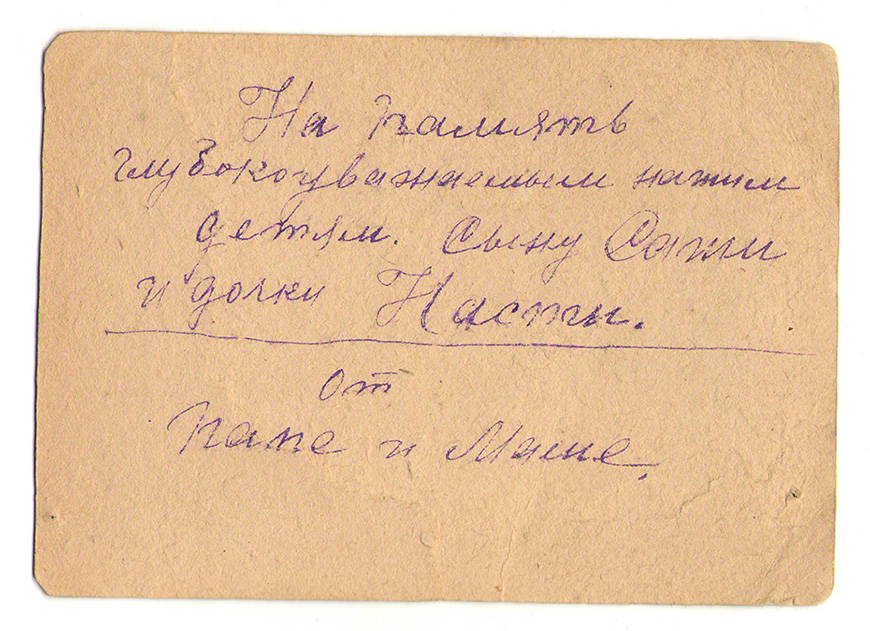 На память
глубокоуважаемым нашим
детям. Сыну Саши
и дочки Насти.
от
Папе и Маме.